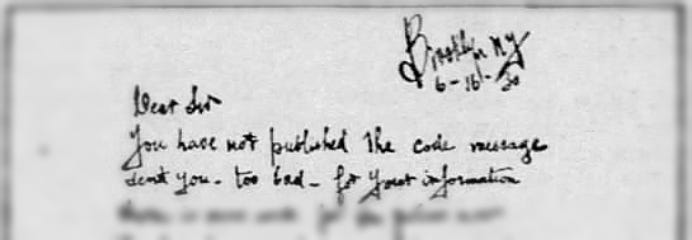 Brooklyn NY
6-16-30
Dear Sir
You have not published the code message
sent you - too bad - for your information